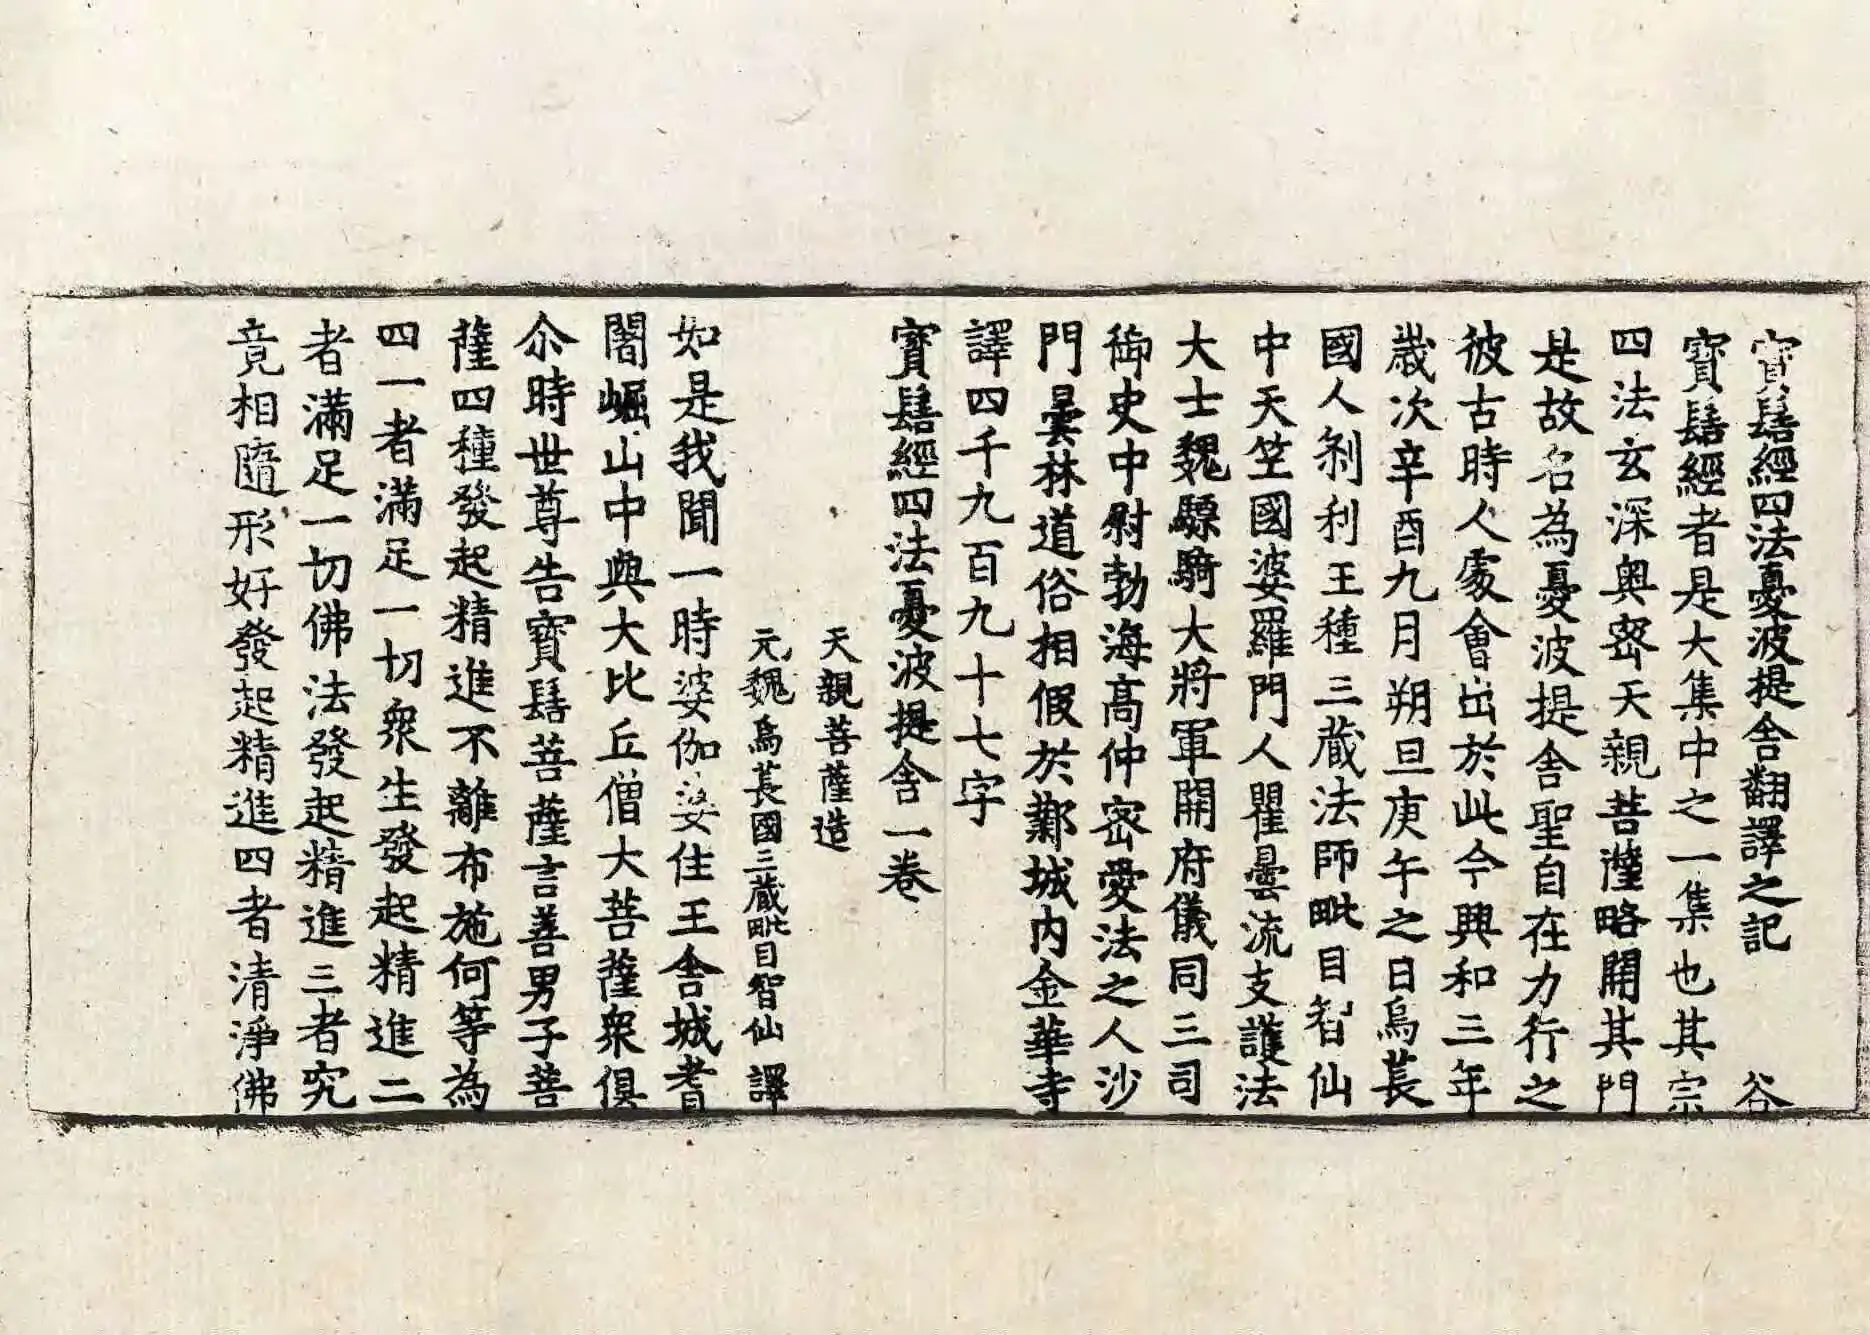 寳髻經四法憂波提舎翻譯之記　谷
寳髻經者是大集中之一集也其宗
四法玄深奥密天親菩薩略開其門
是故名為憂波提舎聖自在力行之
彼古時人處會出於此今興和三年
歳次辛酉九月朔旦庚午之日烏萇
國人刹利王種三藏法師毗目智仙
中天竺國婆羅門人瞿曇流支護法
大士魏驃騎大將軍開府儀同三司
御史中尉勃海高仲密愛法之人沙
門曇林道俗相假於鄴城内金華寺
譯四千九百九十七字
寳髻經四法憂波提舎一卷
天親菩薩造
元魏烏萇國三藏毗目智仙譯
如是我聞一時婆伽婆住王舎城耆
闍崛山中與大比丘僧大菩薩衆俱
尒時世尊告寳髻菩薩言善男子菩
薩四種發起精進不離布施何等為
四一者滿足一切衆生發起精進二
者滿足一切佛法發起精進三者究
竟相隨形好發起精進四者清淨佛